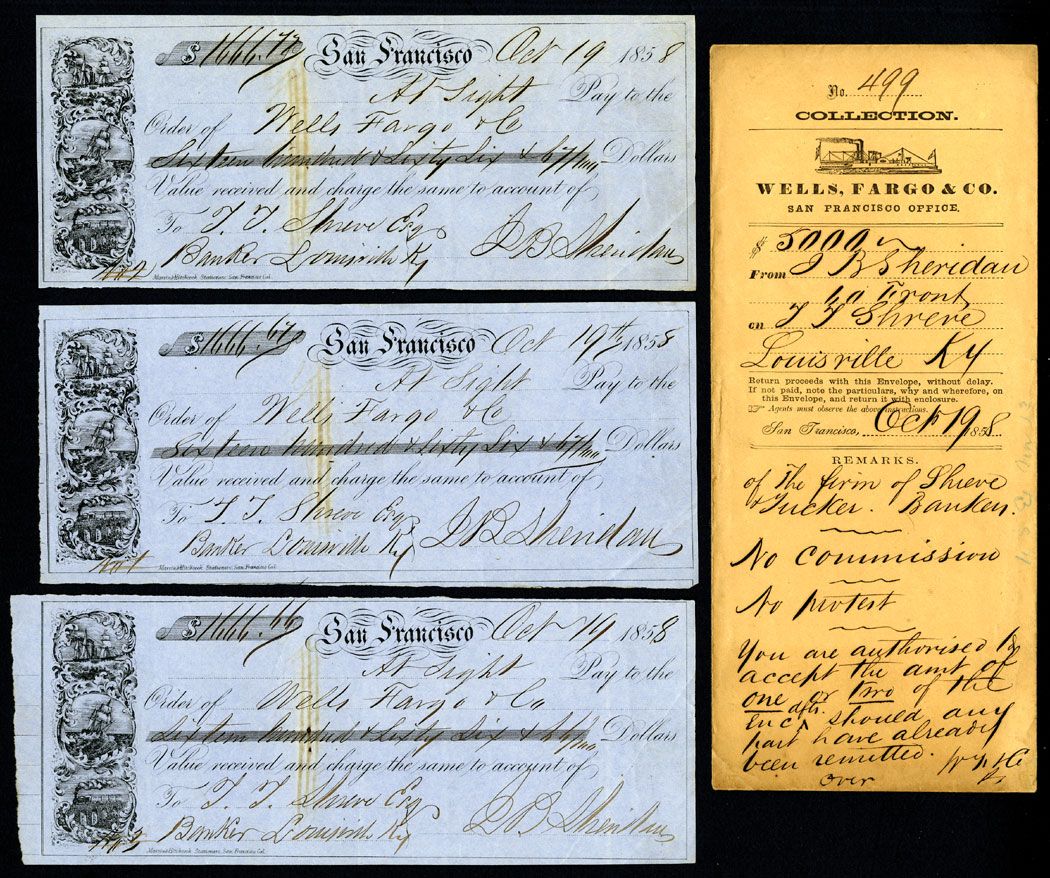 $ 1666.77 San Francisco Oct 19 1858
At Sight Pay to the
Order of Wells Fargo & Co
Sixteen hundred & Sixty Six & 67/100 Dollars
Value received and charge the same to account of
To T. T. Shreve Esq
Banker Louisville Ky J B Sheridan
Marvin & Hitchcock Stationers, San Francisco Cal.
$ 1666.67 San Francisco Oct 19th 1858
At Sight Pay to the
Order of Wells Fargo & Co
Sixteen hundred & Sixty Six & 67/100 Dollars
Value received and charge the same to account of
To T. T. Shreve Esq
Banker Louisville Ky J B Sheridan
Marvin & Hitchcock Stationers, San Francisco Cal.
$ 1666.66 San Francisco Oct 19 1858
At Sight Pay to the
Order of Wells Fargo & Co
Sixteen hundred & Sixty Six & 66/100 Dollars
Value received and charge the same to account of
To T. T. Shreve Esq
Banker Louisville Ky J B Sheridan
Marvin & Hitchcock Stationers, San Francisco Cal.
No. 499
COLLECTION.
WELLS, FARGO & CO.
SAN FRANCISCO OFFICE.
$ 5000
From J B Sheridan
Front
on T T Shreve
Louisville Ky
Return proceeds with this Envelope, without delay.
If not paid, note the particulars, why and wherefore, on
this Envelope, and return it with enclosure.
Agents must observe the above instructions.
San Francisco, Oct 19 1858
REMARKS.
of the firm of Shreve
& Tucker. Bankers.
No commission
No protest
You are authorised to
accept the amt of
one or two of the
enc dfts. should any
part have already
been remitted. W F & Co
over